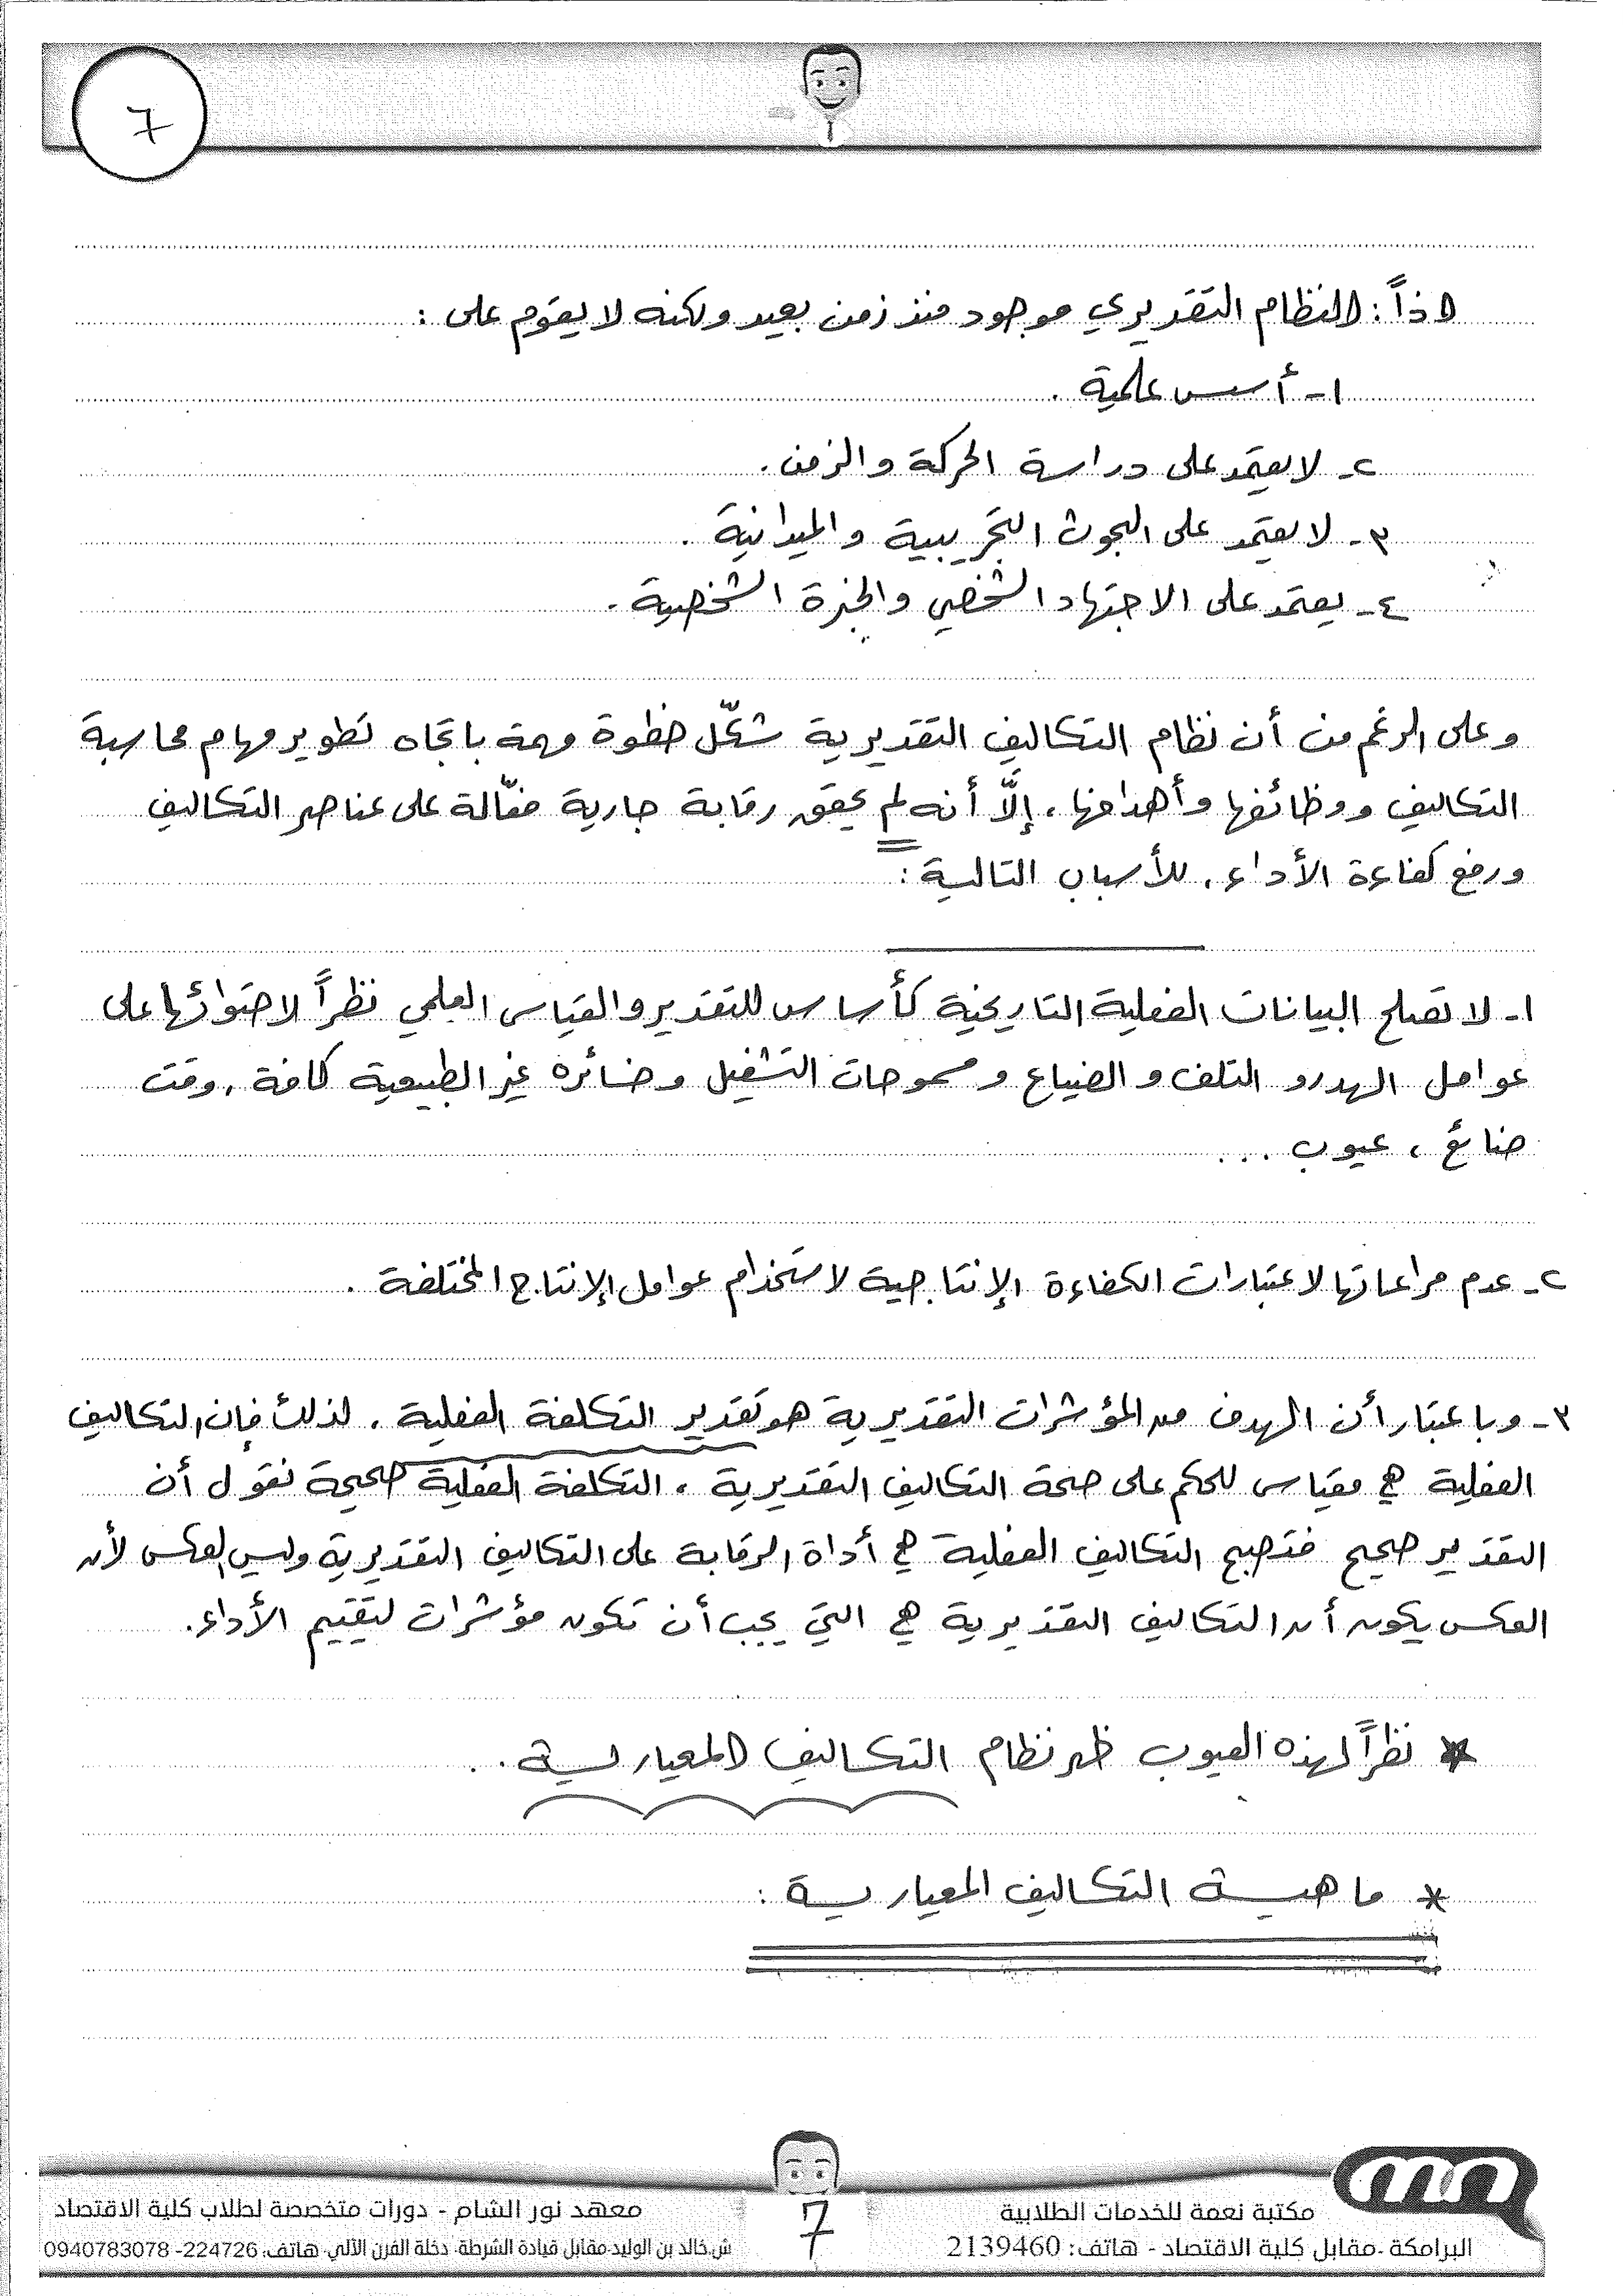 7
اذاً : النظام التقديري موجود منذ زمن بعيد ولكنه لا يقوم على :
١- أسس علمية .
٢- لا يعتمد على دراسة الحركة والزمن .
٣- لا يعتمد على البحوث التجريبية والميدانية .
٤- يعتمد على الاجتهاد الشخصي والخبرة الشخصية .
وعلى الرغم من أن نظام التكاليف التقديرية شكّل خطوة مهمة باتجاه تطوير مهام محاسبة
التكاليف ووظائفها وأهدافها ، إلّا أنه لم يحقق رقابة جارية فعّالة على عناصر التكاليف
ورفع كفاءة الأداء ، للأسباب التالية :
١- لا تصلح البيانات الفعلية التاريخية كأساس للتقدير والقياس العلمي نظراً لاحتوائها على
عوامل الهدر و التلف و الضياع و مسموحات التشغيل وخسائره غير الطبيعية كافة ، وقت
ضائع ، عيوب ...
٢- عدم مراعاتها لاعتبارات الكفاءة الإنتاجية لاستخدام عوامل الإنتاج المختلفة .
٣- وباعتبار أن الهدف من المؤشرات التقديرية هو تقدير التكلفة الفعلية . لذلك فإن التكاليف
الفعلية هي مقياس للحكم على صحة التكاليف التقديرية ، التكلفة الفعلية صحيحة نقول أن
التقدير صحيح فتصبح التكاليف الفعلية هي أداة الرقابة على التكاليف التقديرية وليس العكس لأن
العكس يكون أن التكاليف التقديرية هي التي يجب أن تكون مؤشرات لتقييم الأداء .
* نظراً لهذه العيوب ظهر نظام التكاليف المعيارية . .
* ماهية التكاليف المعيارية :
مكتبة نعمة للخدمات الطلابية
البرامكة -مقابل كلية الاقتصاد - هاتف: 2139460
7
معهد نور الشام - دورات متخصصة لطلاب كلية الاقتصاد
ش.خالد بن الوليد-مقابل قيادة الشرطة- دخلة الفرن الآلي- هاتف: 224726- 0940783078